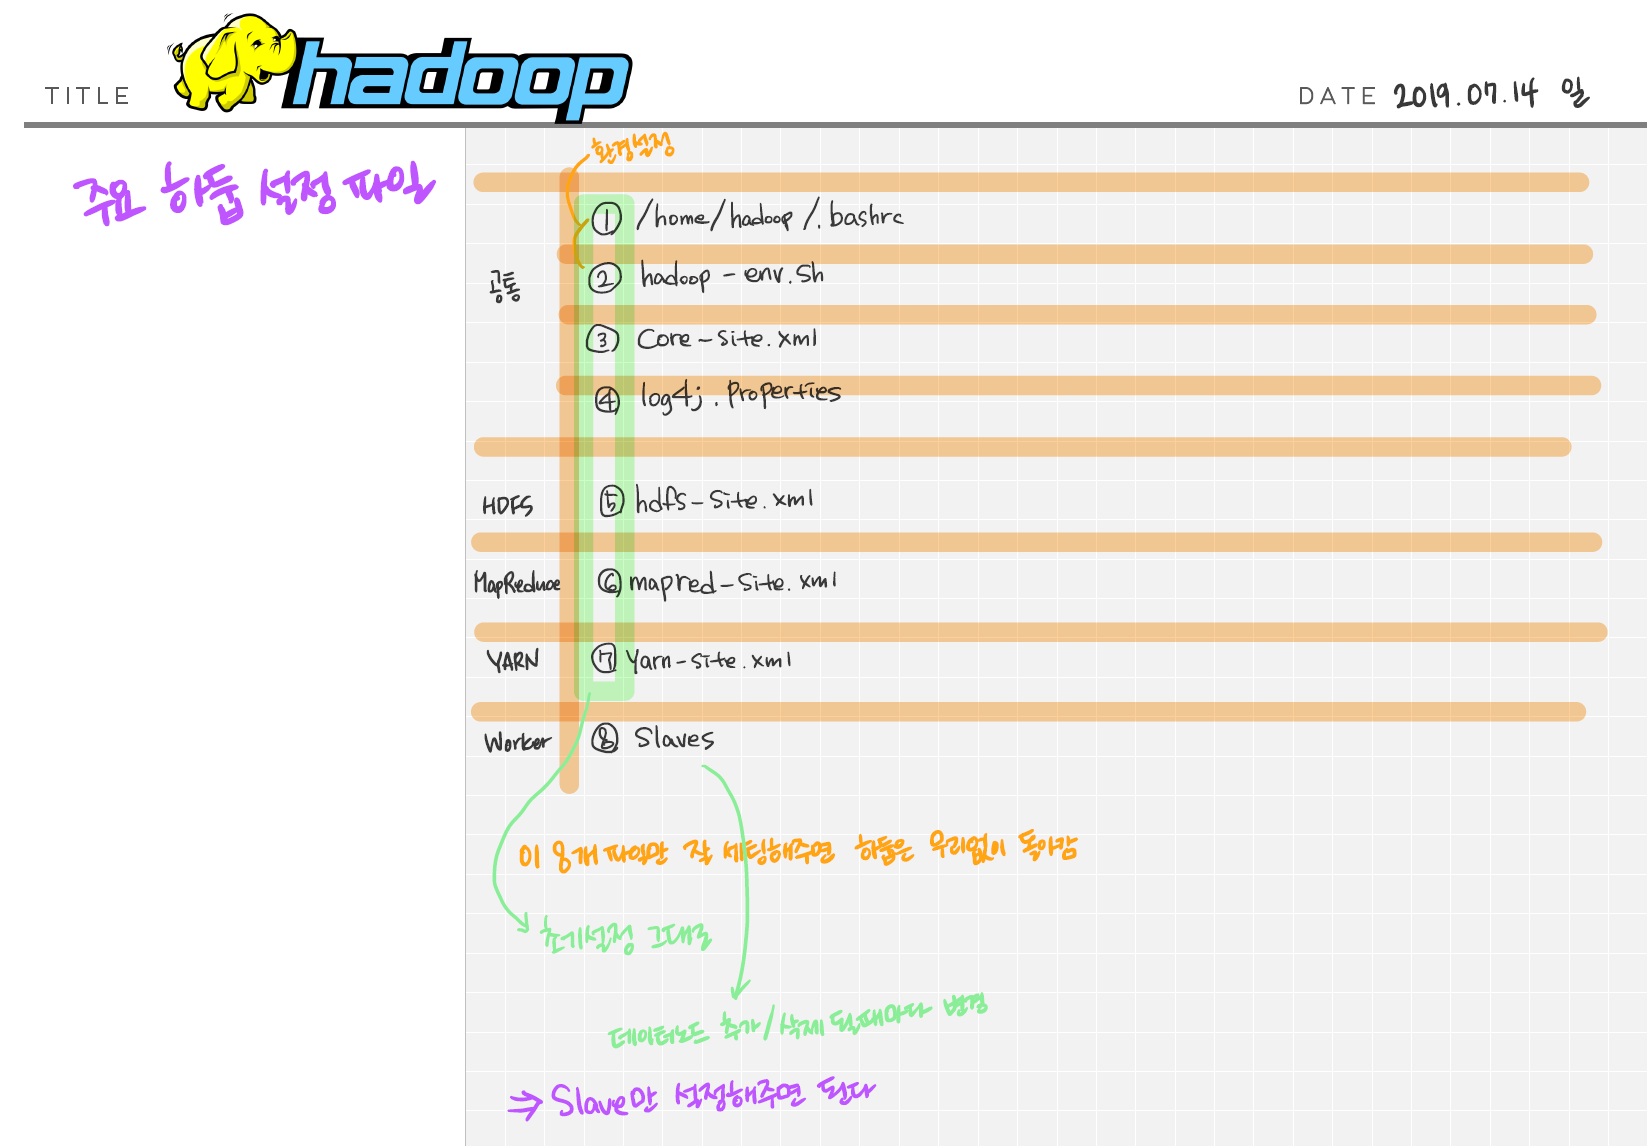 TITLE hadoop DATE 2019.07.14 일
주요 하둡 설정 파일
환경설정
① /home/hadoop/.bashrc
공통 ② hadoop-env.sh
③ Core-site.xml
④ log4j.properties
HDFS ⑤ hdfs-site.xml
MapReduce ⑥ mapred-site.xml
YARN ⑦ Yarn-site.xml
Worker ⑧ Slaves
이 8개 파일만 잘 세팅해주면 하둡은 무리없이 돌아감
초기설정 그대로
데이터노드 추가/삭제 될때마다 변경
⇒ Slave만 설정해주면 된다